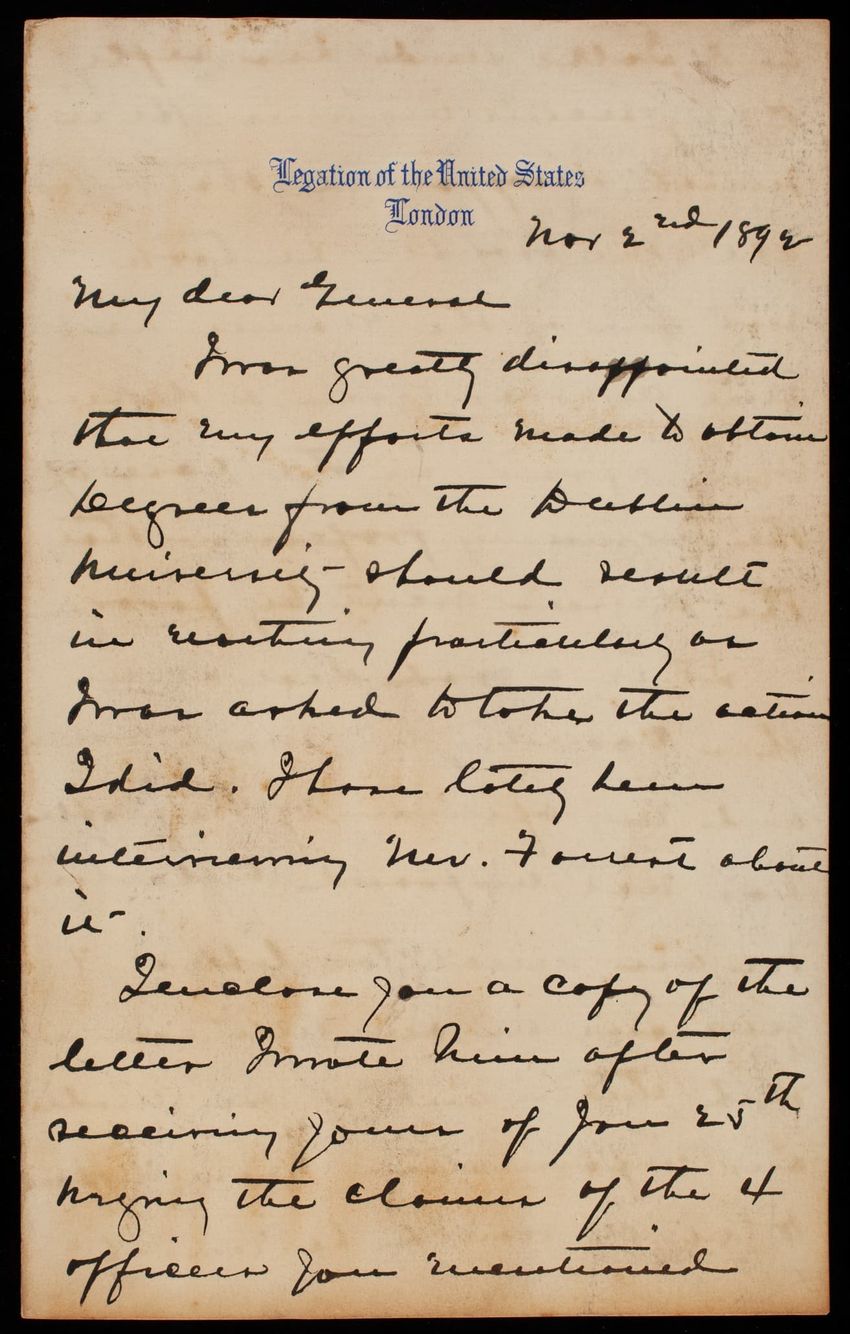 Legation of the United States
London
Nov 22nd 1892
My dear General
I was greatly disappointed
that my efforts made to obtain
Degrees from the Dublin
University should result
in nothing particularly as
I was asked to take the action
I did. I have lately been
interviewing Mr. Forrest about
it.
I enclose you a copy of the
letter I wrote him after
receiving yours of Jan 25th
urging the claims of the 4
officers you mentioned